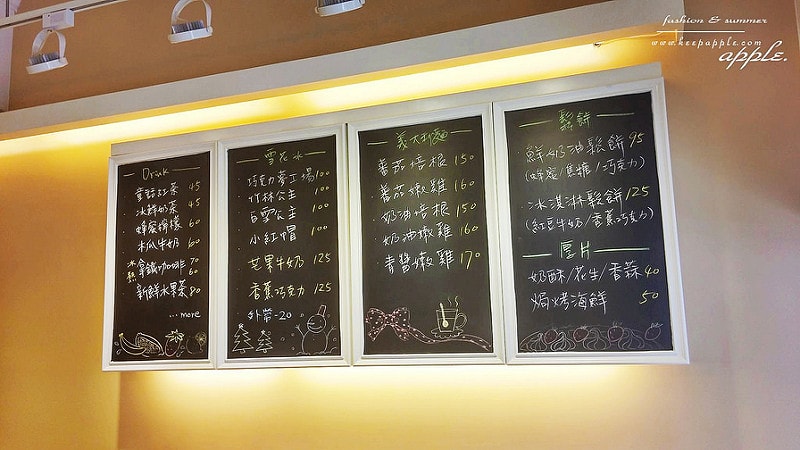 fashion & summer
www.keepapple.com
apple.
Drink
童話紅茶 45
冰鮮奶茶 45
蜂蜜檸檬 60
木瓜牛奶 60
冰 70
熱 60
拿鐵咖啡
新鮮水果茶 80
...more
雪花冰
巧克力夢工場 100
竹林公主 100
白雪公主 100
小紅帽 100
芒果牛奶 125
香蕉巧克力 125
外帶-20
義大利麵
蕃茄培根 150
蕃茄嫩雞 160
奶油培根 150
奶油嫩雞 160
青醬嫩雞 170
鬆餅
鮮奶油鬆餅 95
(蜂蜜/焦糖/巧克力)
冰淇淋鬆餅 125
(紅豆牛奶/香蕉巧克力)
厚片
奶酥/花生/香蒜 40
焗烤海鮮 50